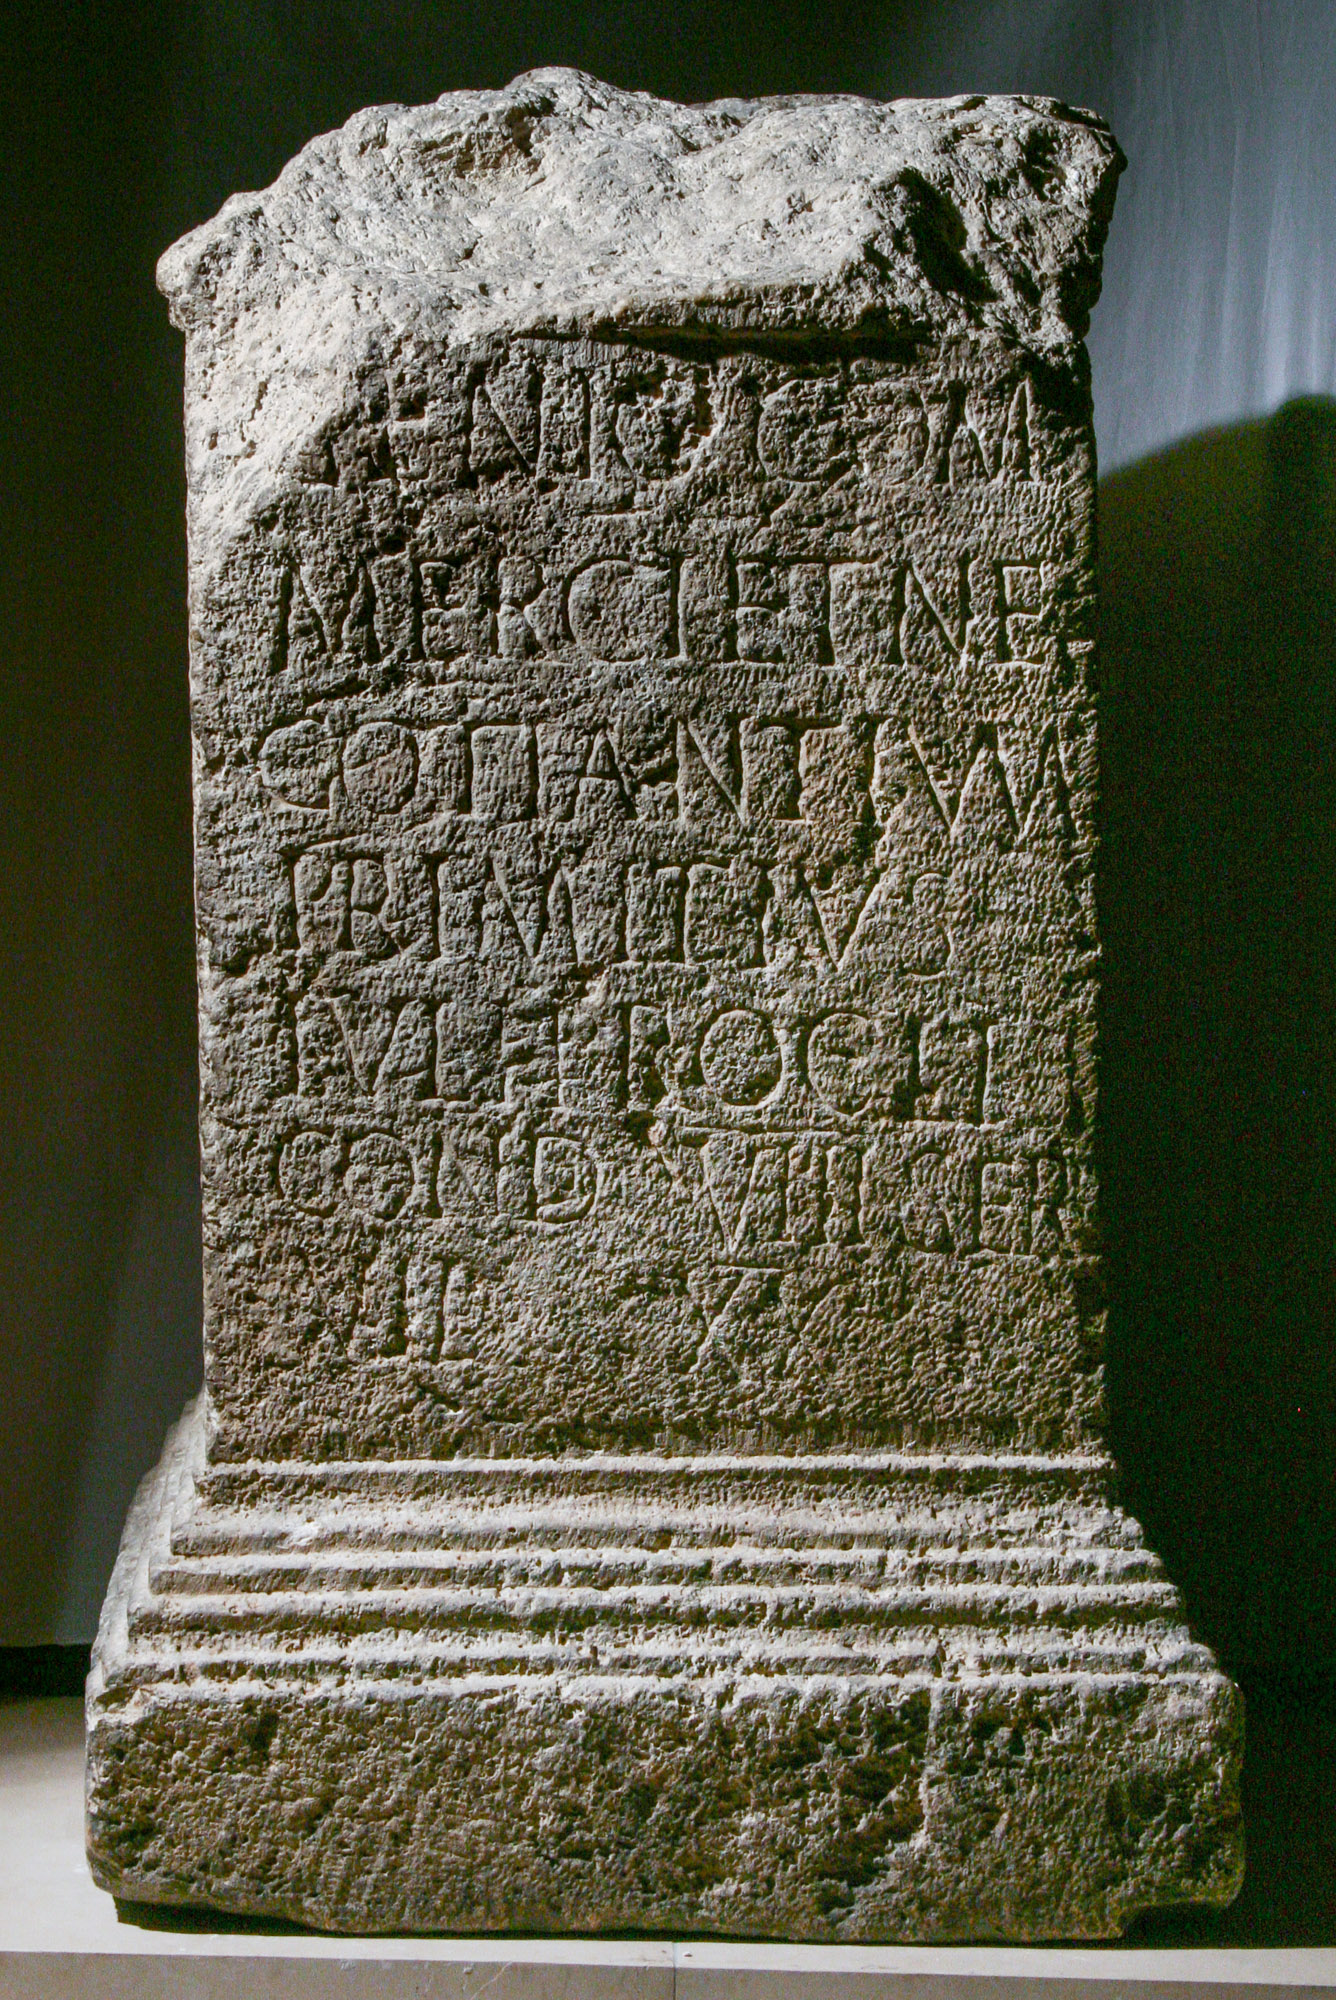 GENIO COM
MERCI ET NE
GOTIANTIVM
PRIMITIVS
IVLI PROCLI
COND VIII SER
VIL